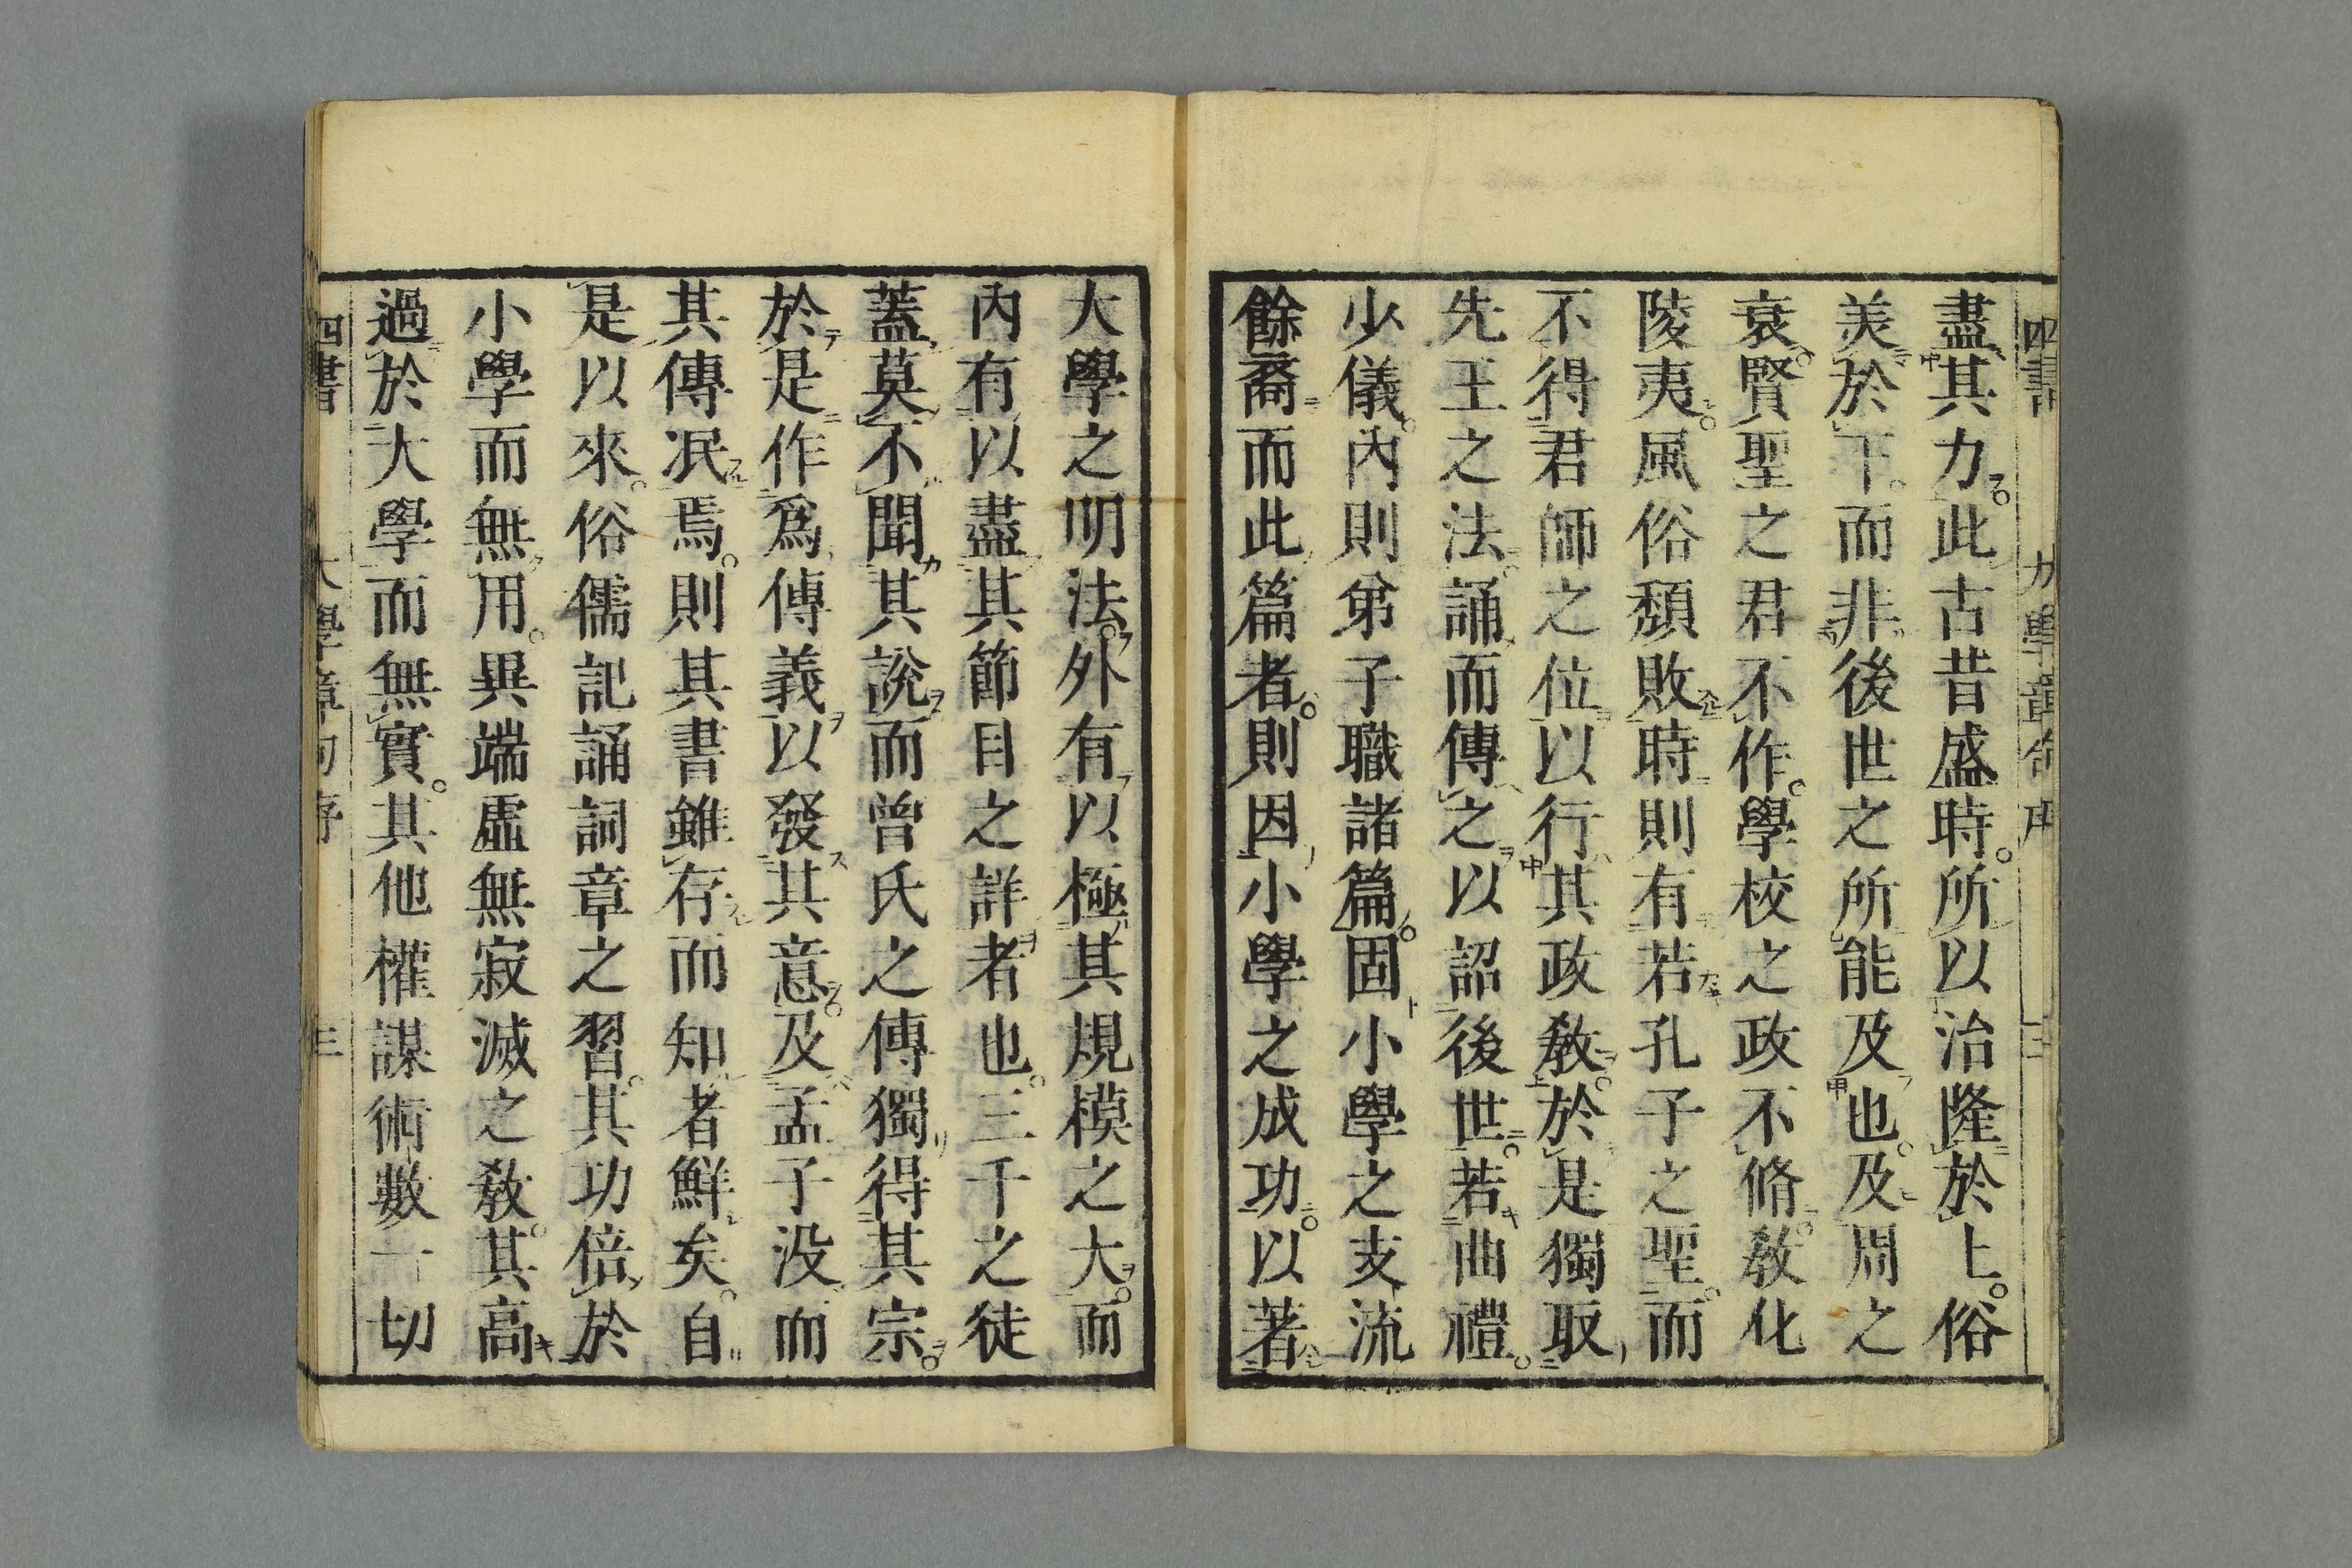 四書 大學章句序
盡其力此古昔盛時所以治隆於上俗
美於下而非後世之所能及也及周之
衰賢聖之君不作學校之政不脩敎化
陵夷風俗頽敗時則有若孔子之聖而
不得君師之位以行其政敎於是獨取
先王之法誦而傳之以詔後世若曲禮
少儀內則弟子職諸篇固小學之支流
餘裔而此篇者則因小學之成功以著
大學之明法外有以極其規模之大而
內有以盡其節目之詳者也三千之徒
蓋莫不聞其說而曾氏之傳獨得其宗
於是作爲傳義以發其意及孟子沒而
其傳泯焉則其書雖存而知者鮮矣自
是以來俗儒記誦詞章之習其功倍於
小學而無用異端虛無寂滅之敎其高
過於大學而無實其他權謀術數一切
四書 大學章句序 三